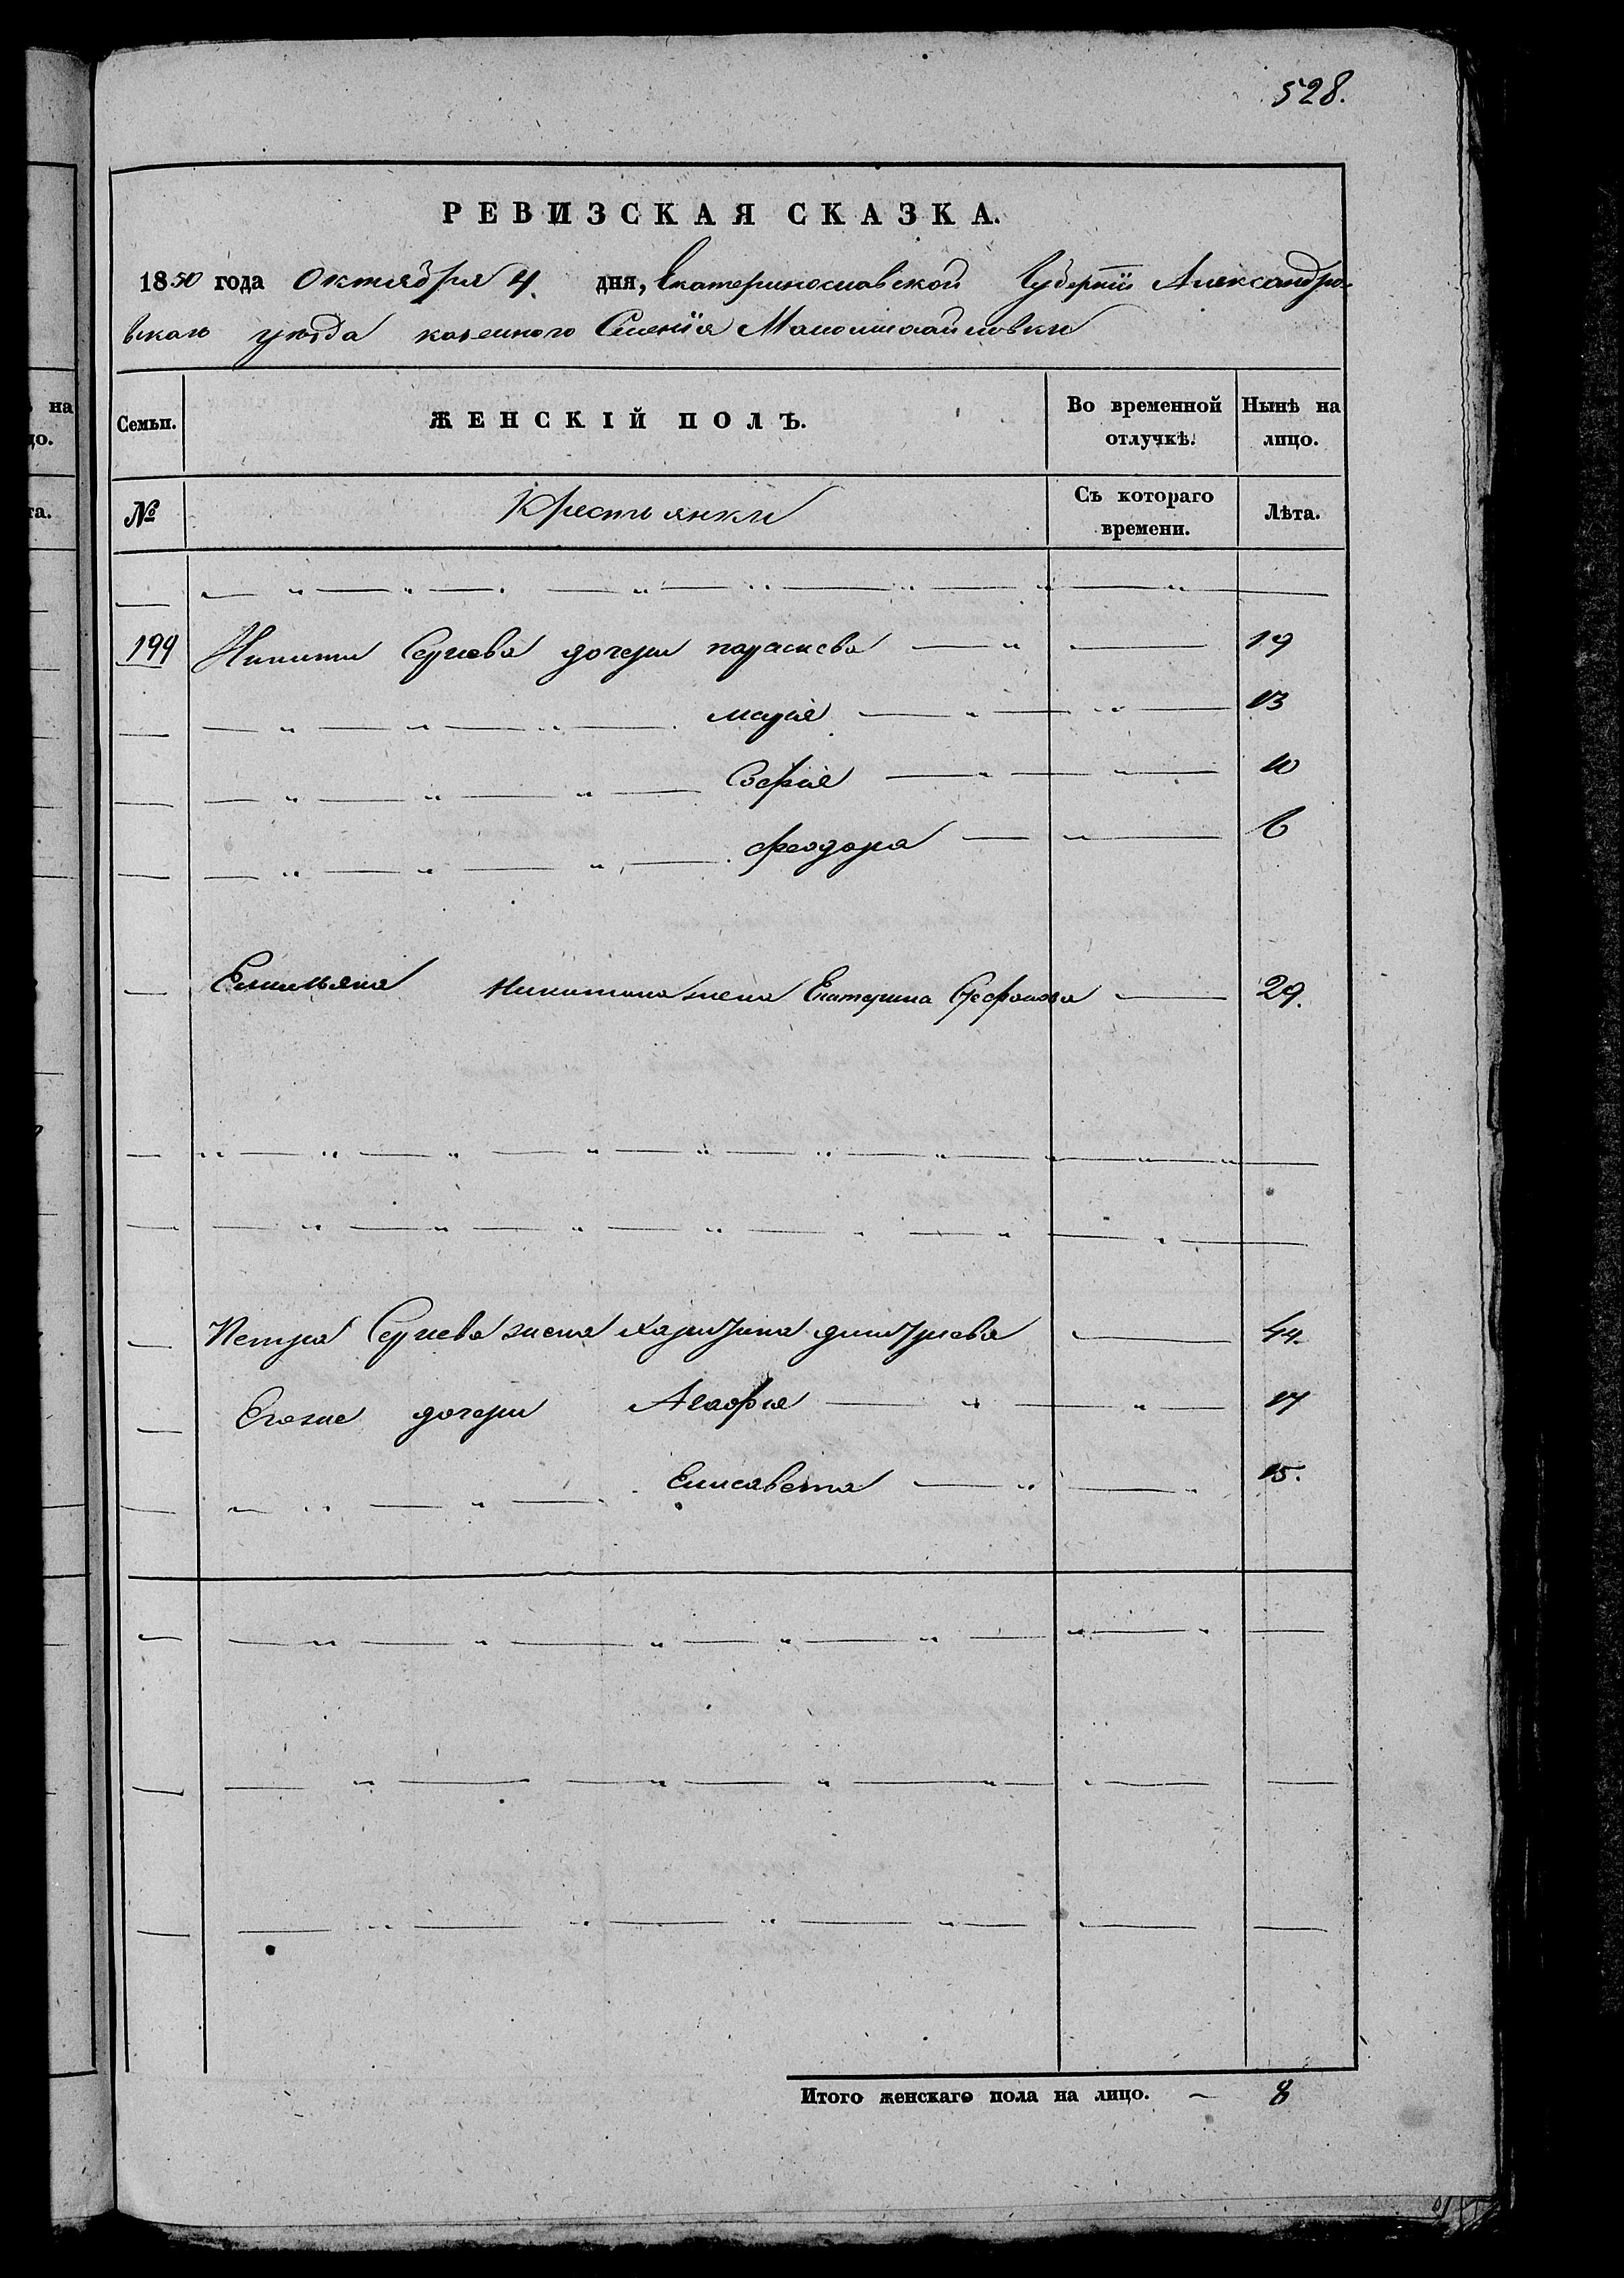 528.
РЕВИЗСКАЯ СКАЗКА.
1850 года Октября 4. дня, Екатеринославской Губернїи Александро-
вскаго уѣзда казеннаго Селенїя Маломихайловки
Семьи. ЖЕНСКІЙ ПОЛЪ. Во временной отлучкѣ. Нынѣ на лицо.
№ Крестьянки Съ котораго времени. Лѣта.
199 Никиты Сергиева дочери параскева 19
марія 13
Софія 10
феодора 6
Емильяна Никитина жена Екатерина 29.
Петра Сергиева жена харитина дмитриева 44.
Егоже дочери Агафія 17
Елисавета 15.
Итого женскаго пола на лицо. 8
на
цо.
та.